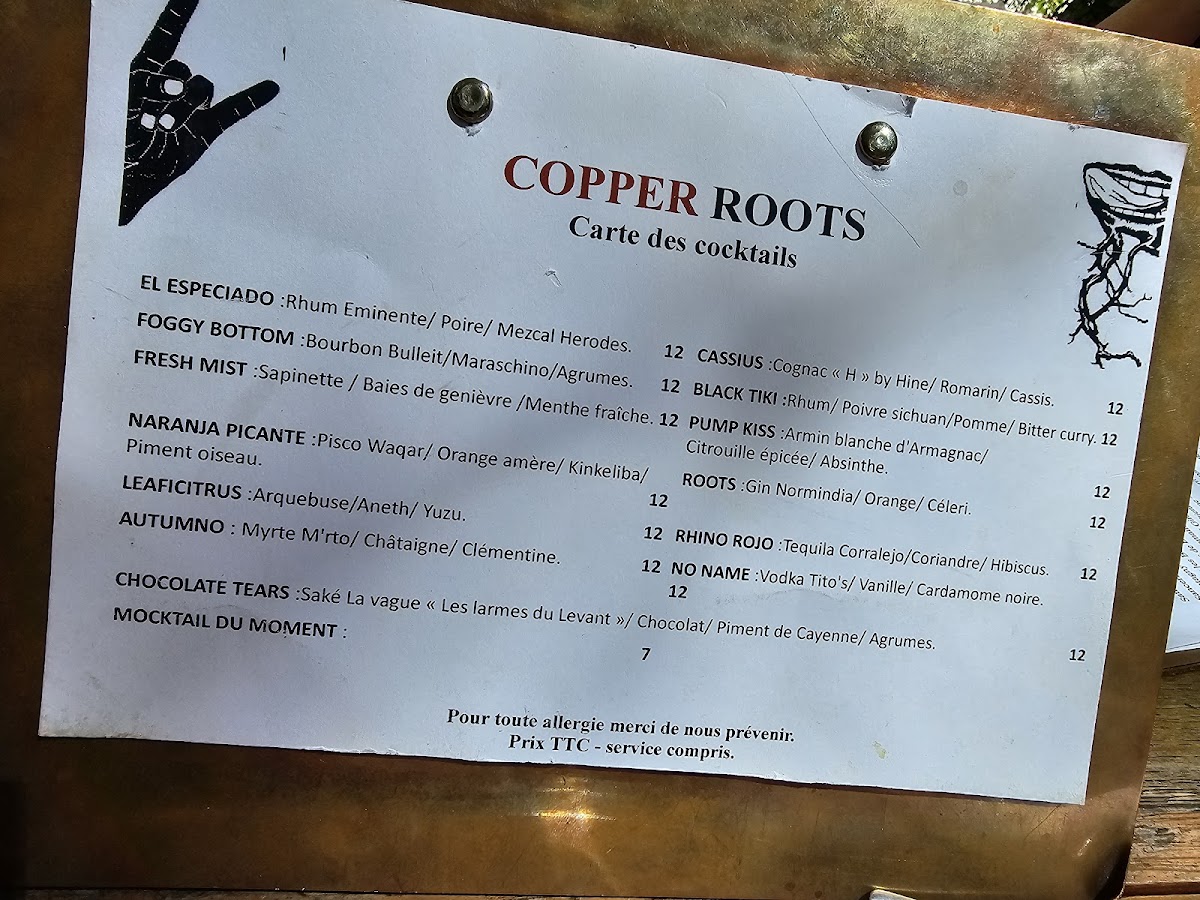 COPPER ROOTS
Carte des cocktails
EL ESPECIADO :Rhum Eminente/ Poire/ Mezcal Herodes. 12
FOGGY BOTTOM :Bourbon Bulleit/Maraschino/Agrumes. 12
FRESH MIST :Sapinette / Baies de genièvre /Menthe fraîche. 12
NARANJA PICANTE :Pisco Waqar/ Orange amère/ Kinkeliba/
Piment oiseau. 12
LEAFICITRUS :Arquebuse/Aneth/ Yuzu. 12
AUTUMNO : Myrte M'rto/ Châtaigne/ Clémentine. 12
CASSIUS :Cognac « H » by Hine/ Romarin/ Cassis. 12
BLACK TIKI :Rhum/ Poivre sichuan/Pomme/ Bitter curry. 12
PUMP KISS :Armin blanche d'Armagnac/
Citrouille épicée/ Absinthe. 12
ROOTS :Gin Normindia/ Orange/ Céleri. 12
RHINO ROJO :Tequila Corralejo/Coriandre/ Hibiscus. 12
NO NAME :Vodka Tito's/ Vanille/ Cardamome noire.
12
CHOCOLATE TEARS :Saké La vague « Les larmes du Levant »/ Chocolat/ Piment de Cayenne/ Agrumes. 12
MOCKTAIL DU MOMENT : 7
Pour toute allergie merci de nous prévenir.
Prix TTC - service compris.